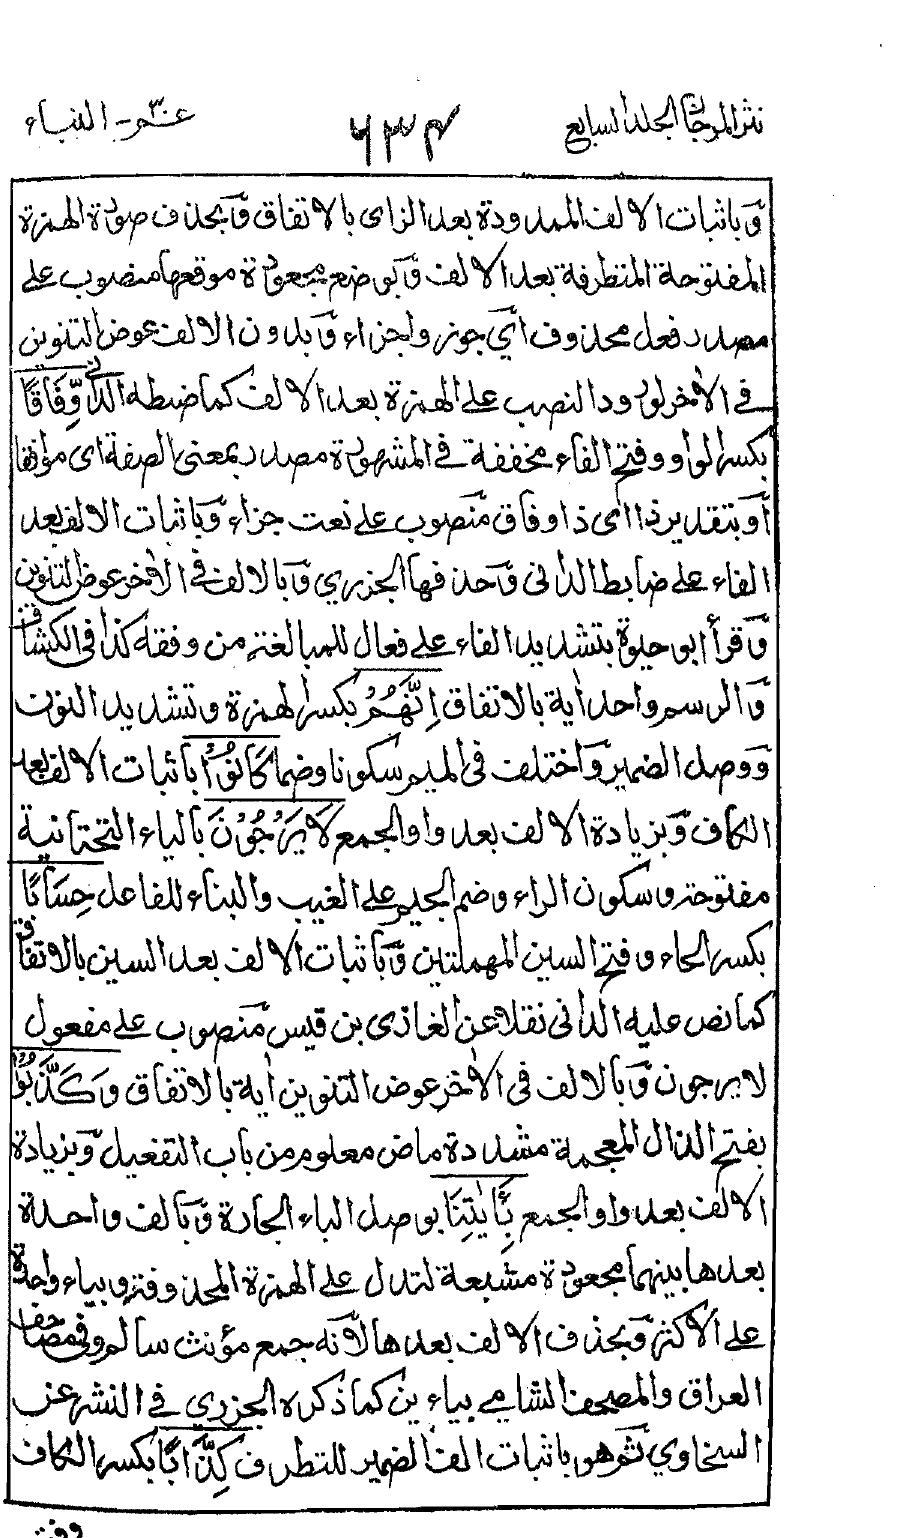 نثر المرجان الجلد السابع
٦٣٤
عم ٣٠ - النباء
وباثبات الالف الممدودة بعد الزاى بالاتفاق وبحذف صورة الهمزة
المفتوحة المتطرفة بعد الالف وبوضع مجعودة موقعها منصوب على
مصدر فعل محذوف اى جوزوا جزاء وبدون الالف عوض التنوين
فى الأخر لورود النصب على الهمزة بعد الالف كما ضبطه الدانى وِّفَاقًا
بكسر الواو وفتح الفاء مخففة فى المشهورة مصدر بمعنى الصفة اى موافقا
او بتقدير ذا اى ذا وفاق منصوب على نعت جزاء وباثبات الالف بعد
الفاء على ضابط الدانى وحذفها الجزري وبالالف فى الأخر عوض التنوين
وقرأ ابو حيوة بتشديد الفاء على فعال للمبالغة من وفقه كذا فى الكشاف
والرسم واحد اية بالاتفاق اِنَّهُمْ بكسر الهمزة وتشديد النون
ووصل الضمير واختلف فى الميم سكونا وضما كَانُوْا باثبات الالف بعد
الكاف وبزيادة الالف بعد واو الجمع لَا يَرْجُوْنَ بالياء التحتانية
مفتوحة وسكون الراء وضم الجيم على الغيب والبناء للفاعل حِسَابًا
بكسر الحاء وفتح السين المهملتين وباثبات الالف بعد السين بالاتفاق
كما نص عليه الدانى نقلا عن الغازى بن قيس منصوب على مفعول
لا يرجون وبالالف فى الأخر عوض التنوين اية بالاتفاق وَكَذَّبُوْا
بفتح الذال المعجمة مشددة ماض معلوم من باب التفعيل وبزيادة
الالف بعد واو الجمع بِاٰيٰتِنَا بوصل الباء الجارة وبالف واحدة
بعدها بينهما مجعودة مشبعة لتدل على الهمزة المحذوفة وبياء واحدة
على الأكثر وبحذف الالف بعدها لانه جمع مؤنث سالم وفى مصاحف
العراق والمصحف الشامي بياءين كما ذكره الجزري فى النشر عن
السخاوي ثم هو باثبات الف الضمير للتطرف كِذَّابًا بكسر الكاف
وفتح